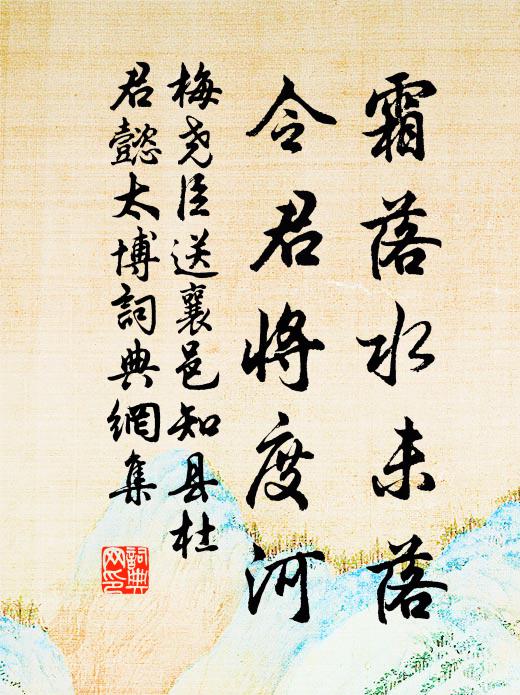 霜落水未落
令君将度河
梅尧臣送襄邑知县杜
君懿太博詞典網集
詞典
网印